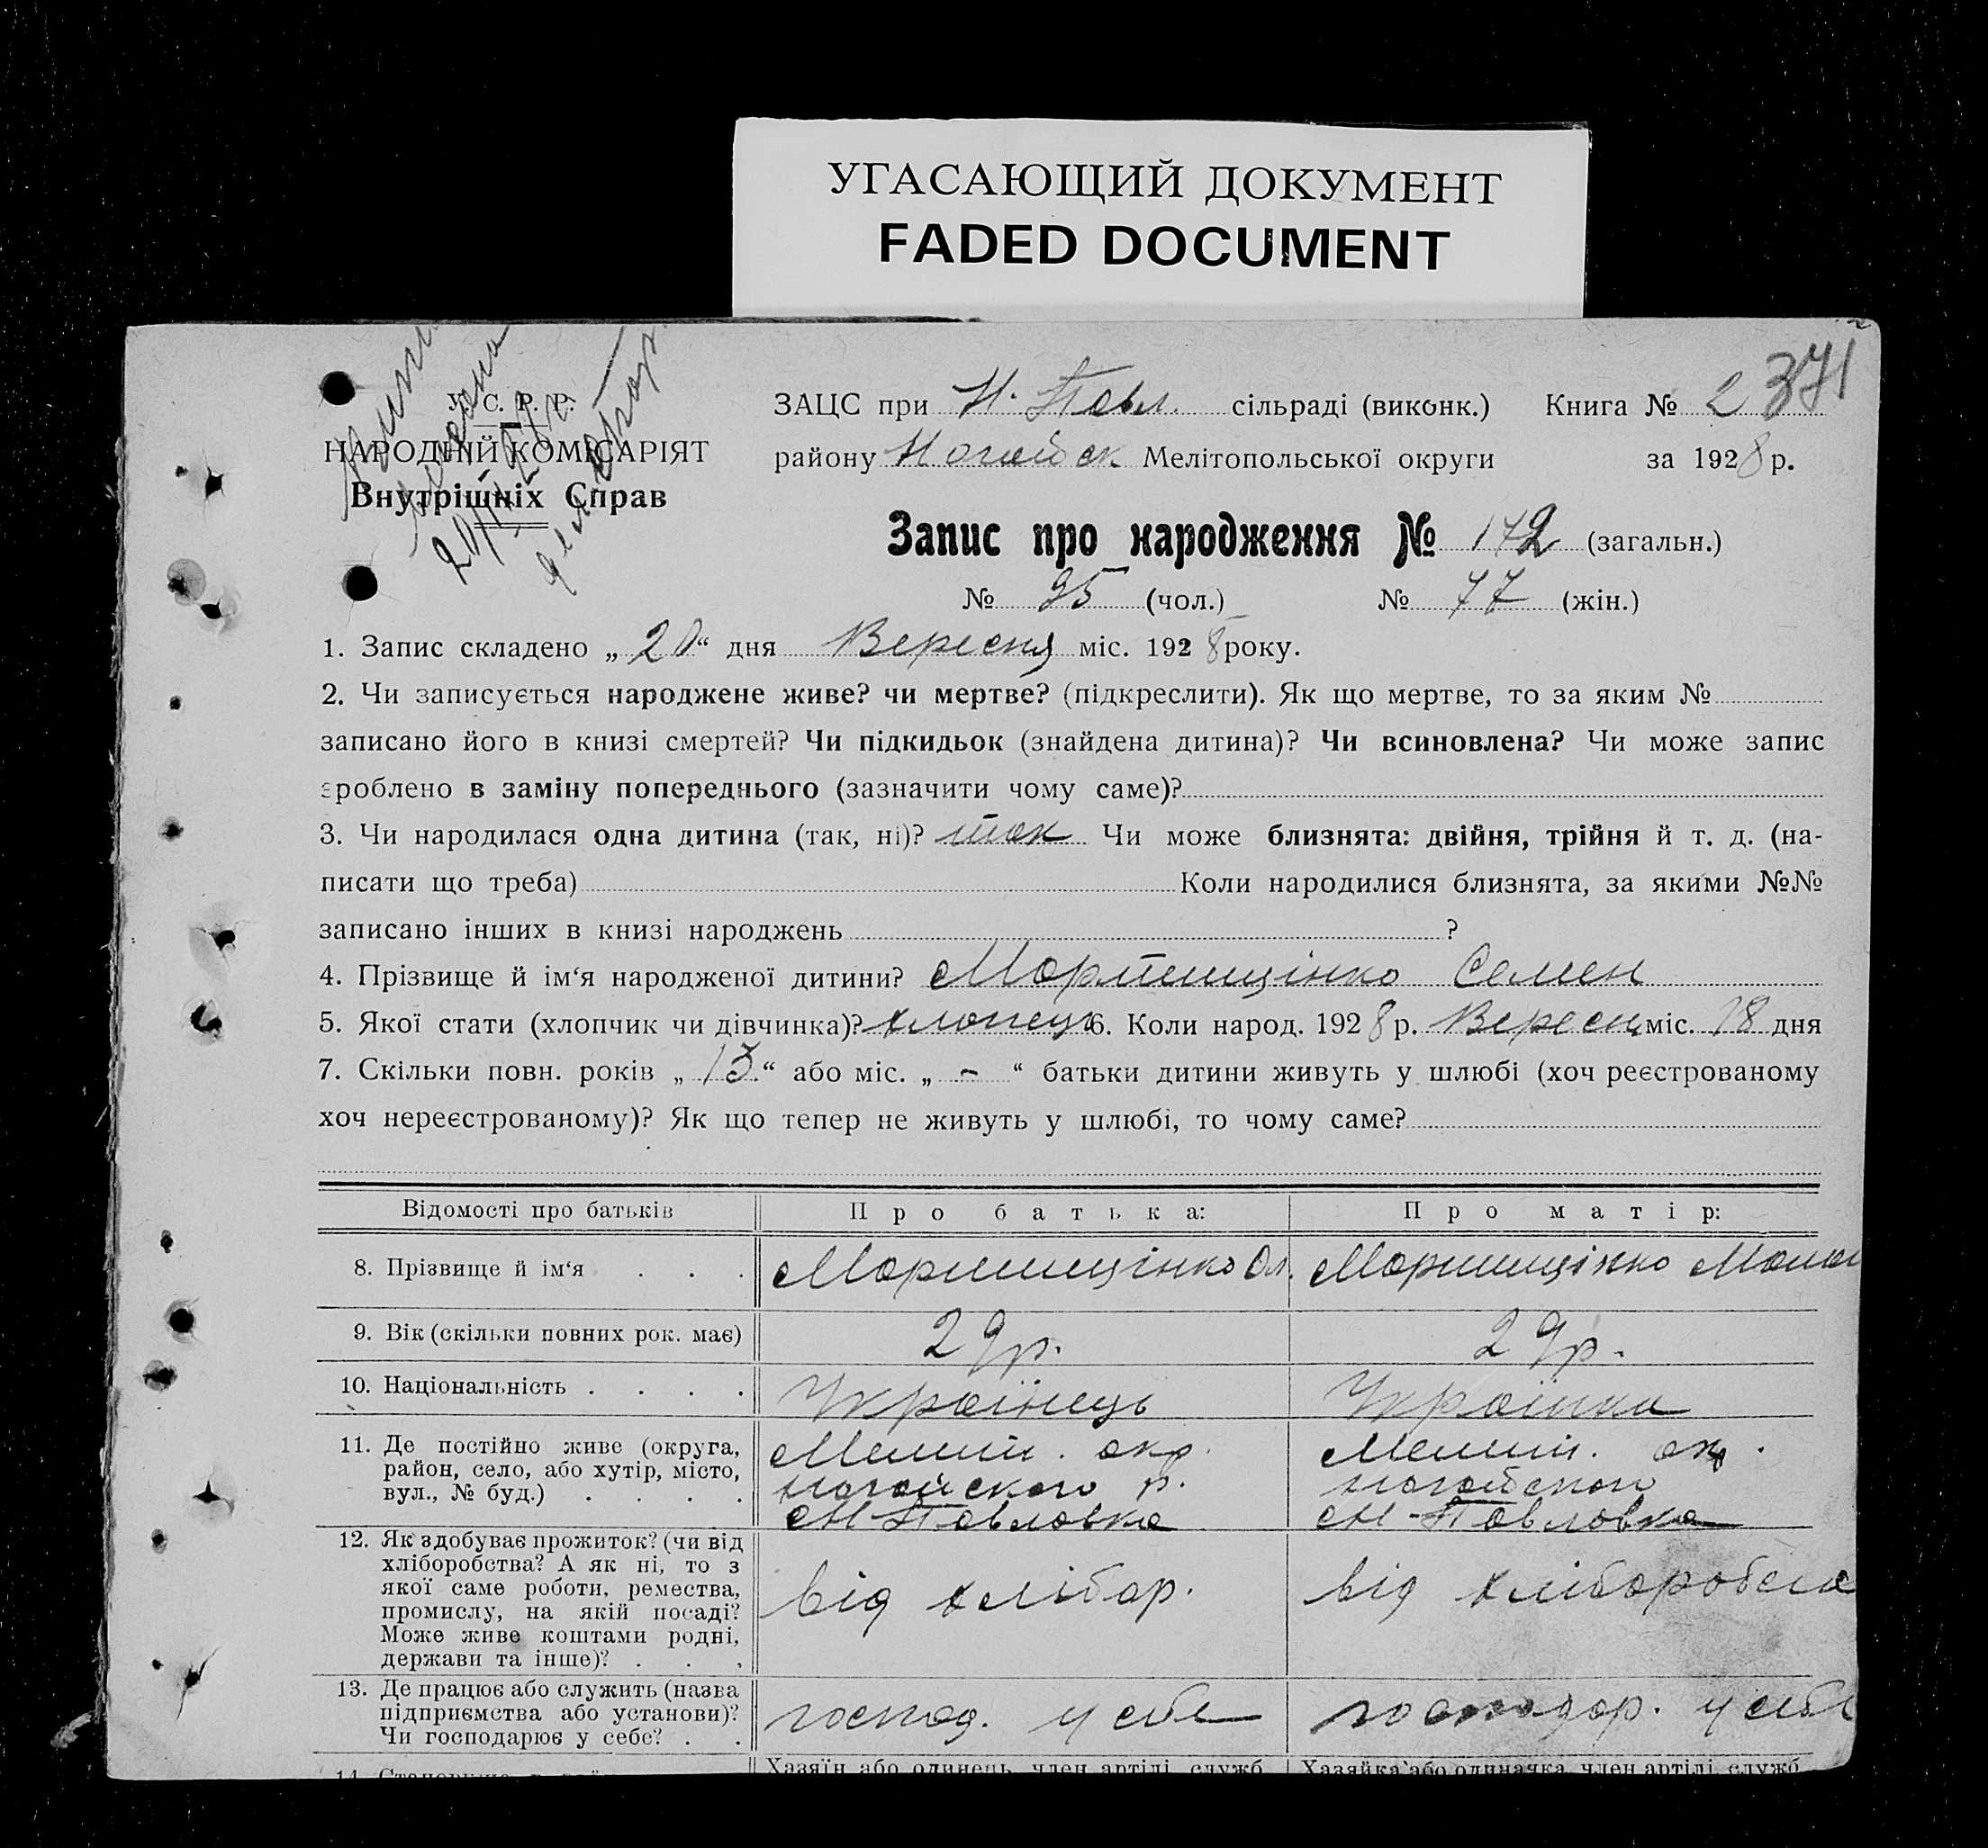 УГАСАЮЩИЙ ДОКУМЕНТ
FADED DOCUMENT
У. С. Р. Р.
НАРОДНІЙ КОМІСАРІЯТ
Внутрішніх Справ
ЗАЦС при Н. Павл. сільраді (виконк.) Книга № 2 371
району Ногайск Мелітопольської округи за 1928 р.
Запис про народження № 172 (загальн.)
№ 95 (чол.) № 77 (жін.)
1. Запис складено „20“ дня Вересня міс. 1928 року.
2. Чи записується народжене живе? чи мертве? (підкреслити). Як що мертве, то за яким №
записано його в книзі смертей? Чи підкидьок (знайдена дитина)? Чи всиновлена? Чи може запис
зроблено в заміну попереднього (зазначити чому саме)?
3. Чи народилася одна дитина (так, ні)? так Чи може близнята: двійня, трійня й т. д. (на-
писати що треба) Коли народилися близнята, за якими №№
записано інших в книзі народжень ?
4. Прізвище й ім‘я народженої дитини? Семен
5. Якої стати (хлопчик чи дівчинка)? хлопець 6. Коли народ. 1928 р. Вересн міс. 18 дня
7. Скільки повн. років „13“ або міс. „-“ батьки дитини живуть у шлюбі (хоч реєстрованому
хоч нереєстрованому)? Як що тепер не живуть у шлюбі, то чому саме?
Відомості про батьків Про батька: Про матір:
8. Прізвище й ім‘я . . . Ол.
9. Вік (скільки повних рок. має) 29 р. 29 р.
10. Національність . . . . Українець Українка
11. Де постійно живе (округа,
район, село, або хутір, місто,
вул., № буд.) . . . .
Мелит. окр. Мелит. окр.
ногайского р. ногайского
с Н-Павловка с Н-Павловка
12. Як здобуває прожиток? (чи від
хліборобства? А як ні, то з
якої саме роботи, ремества,
промислу, на якій посаді?
Може живе коштами родні,
держави та інше)? . . .
від хлібор. від хлібороб
13. Де працює або служить (назва
підприємства або установи)?
Чи господарює у себе? . .
господ. у себе господар. у себе
Хазяїн або одинець, член артілі, служб. Хазяйка або одиначка, член артілі, служб.